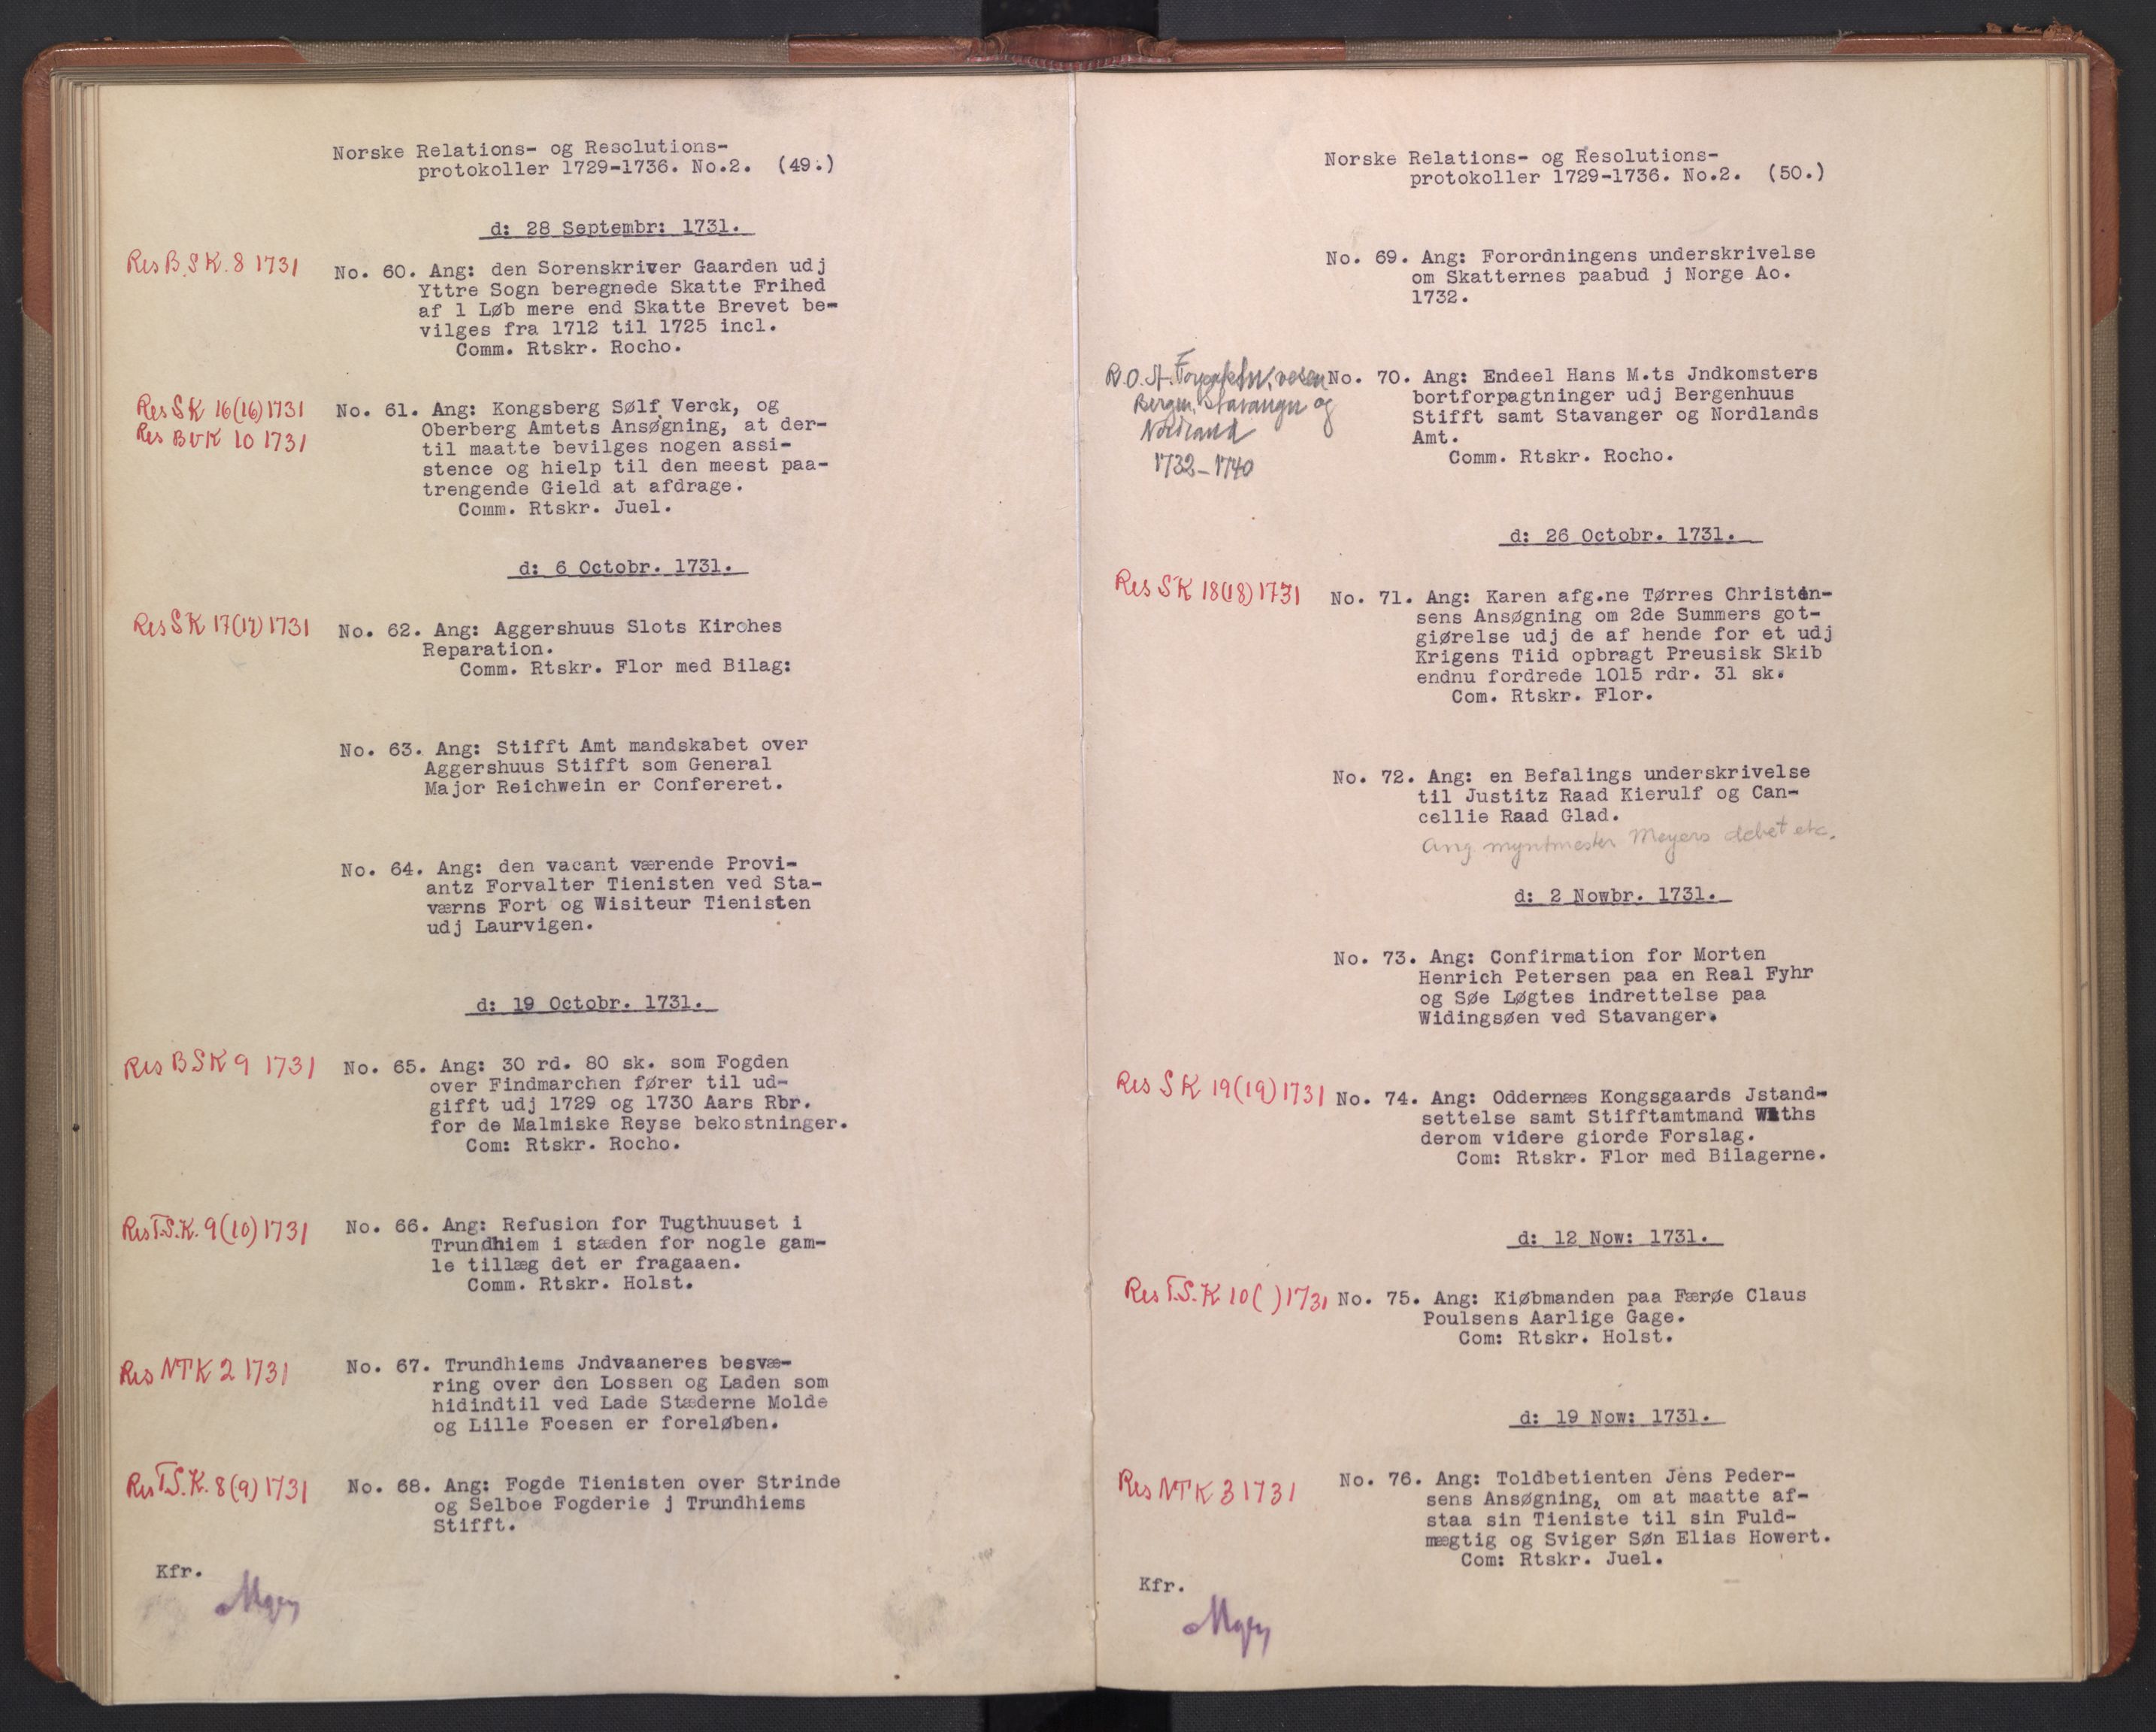 Norske Relations- og Resolutions-
protokoller 1729-1736. No.2. (49.)
d: 28 Septembr: 1731.
Res B.S K. 8 1731
No. 60. Ang: den Sorenskriver Gaarden udj
Yttre Sogn beregnede Skatte Frihed
af 1 Løb mere end Skatte Brevet be-
vilges fra 1712 til 1725 incl.
Comm. Rtskr. Rocho.
Res SK 16(16) 1731
Res BVK 10 1731
No. 61. Ang: Kongsberg Sølf Verck, og
Oberberg Amtets Ansøgning, at der-
til maatte bevilges nogen assi-
stence og hielp til den meest paa-
trengende Gield at afdrage.
Comm. Rtskr. Juel.
d: 6 Octobr. 1731.
Res SK 17(17) 1731
No. 62. Ang: Aggershuus Slots Kirches
Reparation.
Comm. Rtskr. Flor med Bilag:
No. 63. Ang: Stifft Amt mandskabet over
Aggershuus Stifft som General
Major Reichwein er Confereret.
No. 64. Ang: den vacant værende Provi-
antz Forvalter Tienisten ved Sta-
værns Fort og Wisiteur Tienisten
udj Laurvigen.
d: 19 Octobr. 1731.
Res BSK 9 1731
No. 65. Ang: 30 rd. 80 sk. som Fogden
over Findmarchen fører til ud-
gifft udj 1729 og 1730 Aars Rbr.
for de Malmiske Reyse bekostninger.
Com: Rtskr. Rocho.
Res T.S.K. 9(10) 1731
No. 66. Ang: Refusion for Tugthuuset i
Trundhiem i stæden for nogle gam-
le tillæg det er fragaaen.
Comm. Rtskr. Holst.
Res NTK 2 1731
No. 67. Trundhiems Jndvaaneres besvæ-
ring over den Lossen og Laden som
hidindtil ved Lade Stæderne Molde
og Lille Foesen er foreløben.
Res T.S.K. 8(9) 1731
No. 68. Ang: Fogde Tienisten over Strinde
og Selboe Fogderie j Trundhiems
Stifft.
Kfr.
Norske Relations- og Resolutions-
protokoller 1729-1736. No.2. (50.)
No. 69. Ang: Forordningens underskrivelse
om Skatternes paabud j Norge Ao.
1732.
R.O.A.
Bergen, Stavanger og
Nordland
1732-1740
No. 70. Ang: Endeel Hans M.ts Jndkomsters
bortforpagtninger udj Bergenhuus
Stifft samt Stavanger og Nordlands
Amt.
Comm. Rtskr. Rocho.
d: 26 Octobr. 1731.
Res SK 18(18) 1731
No. 71. Ang: Karen afg.ne Tørres Christen-
sens Ansøgning om 2de Summers got-
giørelse udj de af hende for et udj
Krigens Tiid opbragt Preusisk Skib
endnu fordrede 1015 rdr. 31 sk.
Com. Rtskr. Flor.
No. 72. Ang: en Befalings underskrivelse
til Justitz Raad Kierulf og Can-
cellie Raad Glad.
Ang. myntmester Meyers debet etc.
d: 2 Nowbr. 1731.
No. 73. Ang: Confirmation for Morten
Henrich Petersen paa en Real Fyhr
og Søe Løgtes indrettelse paa
Widingsøen ved Stavanger.
Res SK 19(19) 1731
No. 74. Ang: Oddernæs Kongsgaards Jstand-
settelse samt Stifftamtmand
derom videre giorde Forslag.
Com: Rtskr. Flor med Bilagerne.
d: 12 Now: 1731.
Res T.S.K 10( ) 1731
No. 75. Ang: Kiøbmanden paa Færøe Claus
Poulsens Aarlige Gage.
Com: Rtskr. Holst.
d: 19 Now: 1731.
Res NTK 3 1731
No. 76. Ang: Toldbetienten Jens Peder-
sens Ansøgning, om at maatte af-
staa sin Tieniste til sin Fuld-
mægtig og Sviger Søn Elias Howert.
Com: Rtskr. Juel.
Kfr.